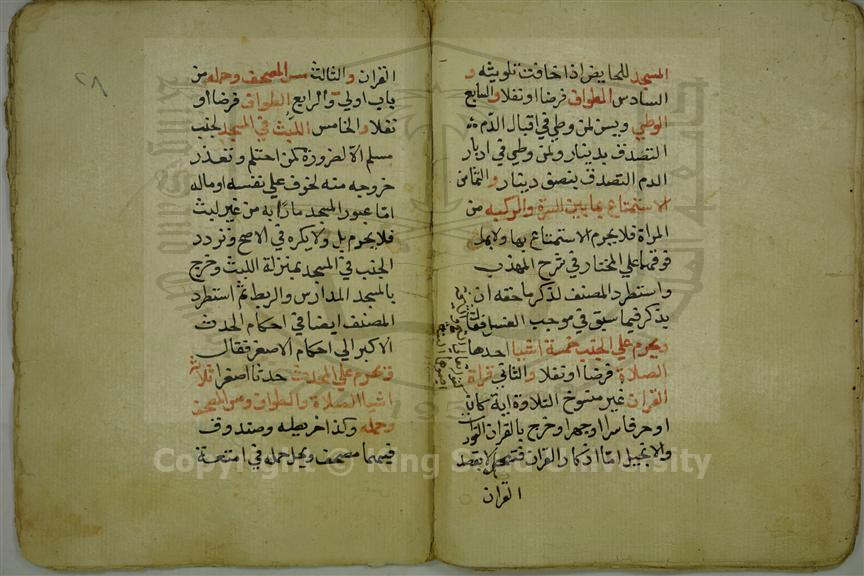 المسجد للحايض اذا خافت تلويثه و
السادس الطواف فرضا او نفلا والسابع
الوطي ويسن لمن وطي في اقبال الدم
التصدق بدينار ولمن وطي في ادبار
الدم التصدق بنصف دينار والثامن
الاستمتاع بما بين السرة والركبة من
المراة فلا يحرم الاستمتاع بها ولا بما
فوقهما علي المختار في شرح المهذب
واستطرد المصنف لذكر ما حقه ان
يذكر فيما سبق في موجب الغسل فقال
ويحرم علي الجنب خمسة اشيا احدها
الصلاة فرضا او نفلا والثاني قراة
القران غير منسوخ التلاوة اية كان
او حرفا سرا او جهرا وخرج بالقران التوراة
والانجيل اما اذكار القران فتحل لا بقصد
القران
٢٨
القران والثالث مس المصحف وحمله من
باب اولي والرابع الطواف فرضا او
نفلا والخامس اللبث في المسجد لجنب
مسلم الا لضرورة كمن احتلم وتعذر
خروجه منه لخوف علي نفسه او ماله
اما عبور المسجد مارا به من غير لبث
فلا يحرم بل ولا يكره في الاصح وتردد
الجنب في المسجد بمنزلة اللبث وخرج
بالمسجد المدارس والربط ثم استطرد
المصنف ايضا في احكام الحدث
الاكبر الي احكام الاصغر فقال
ويحرم علي المحدث حدثا اصغر ثلاثة
اشيا الصلاة والطواف ومس المصحف
وحمله وكذا خريطه وصندوق
فيهما مصحف ويحل حمله في امتعة
Copyright © King Saud University